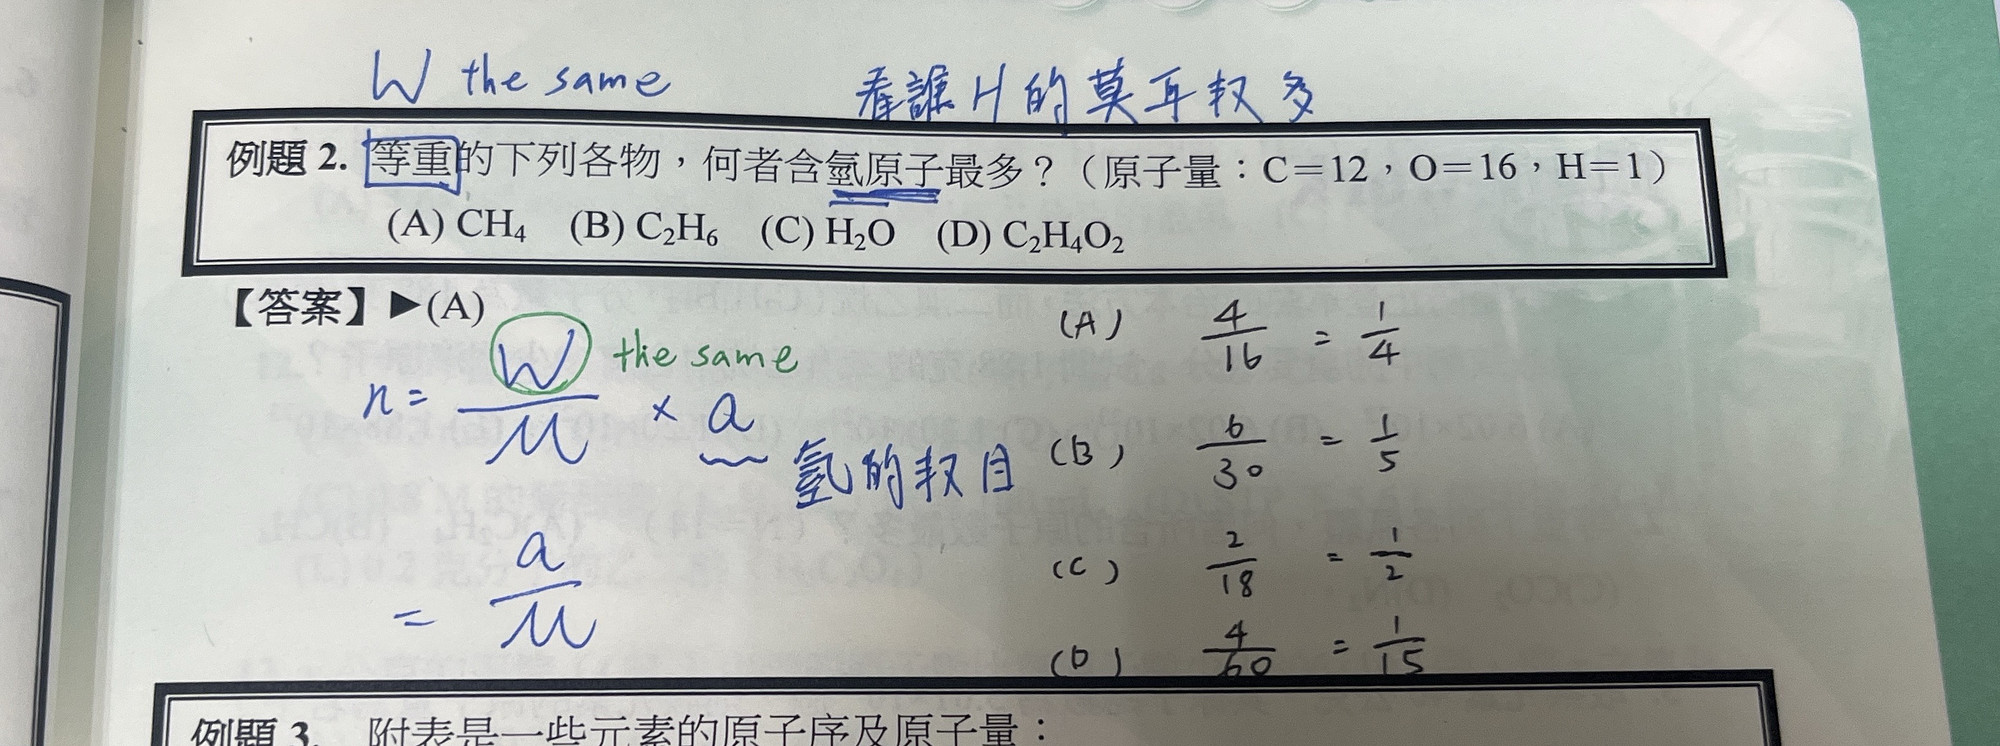 W the same
看誰H的莫耳权多
例題 2. 等重的下列各物，何者含氫原子最多？（原子量：C＝12，O＝16，H＝1）
(A) CH₄ (B) C₂H₆ (C) H₂O (D) C₂H₄O₂
【答案】▶(A)
n = W/M × a
the same
氫的权目
= a/M
(A) 4/16 = 1/4
(B) 6/30 = 1/5
(C) 2/18 = 1/2
(D) 4/60 = 1/15
例題 3. 附表是一些元素的原子序及原子量：